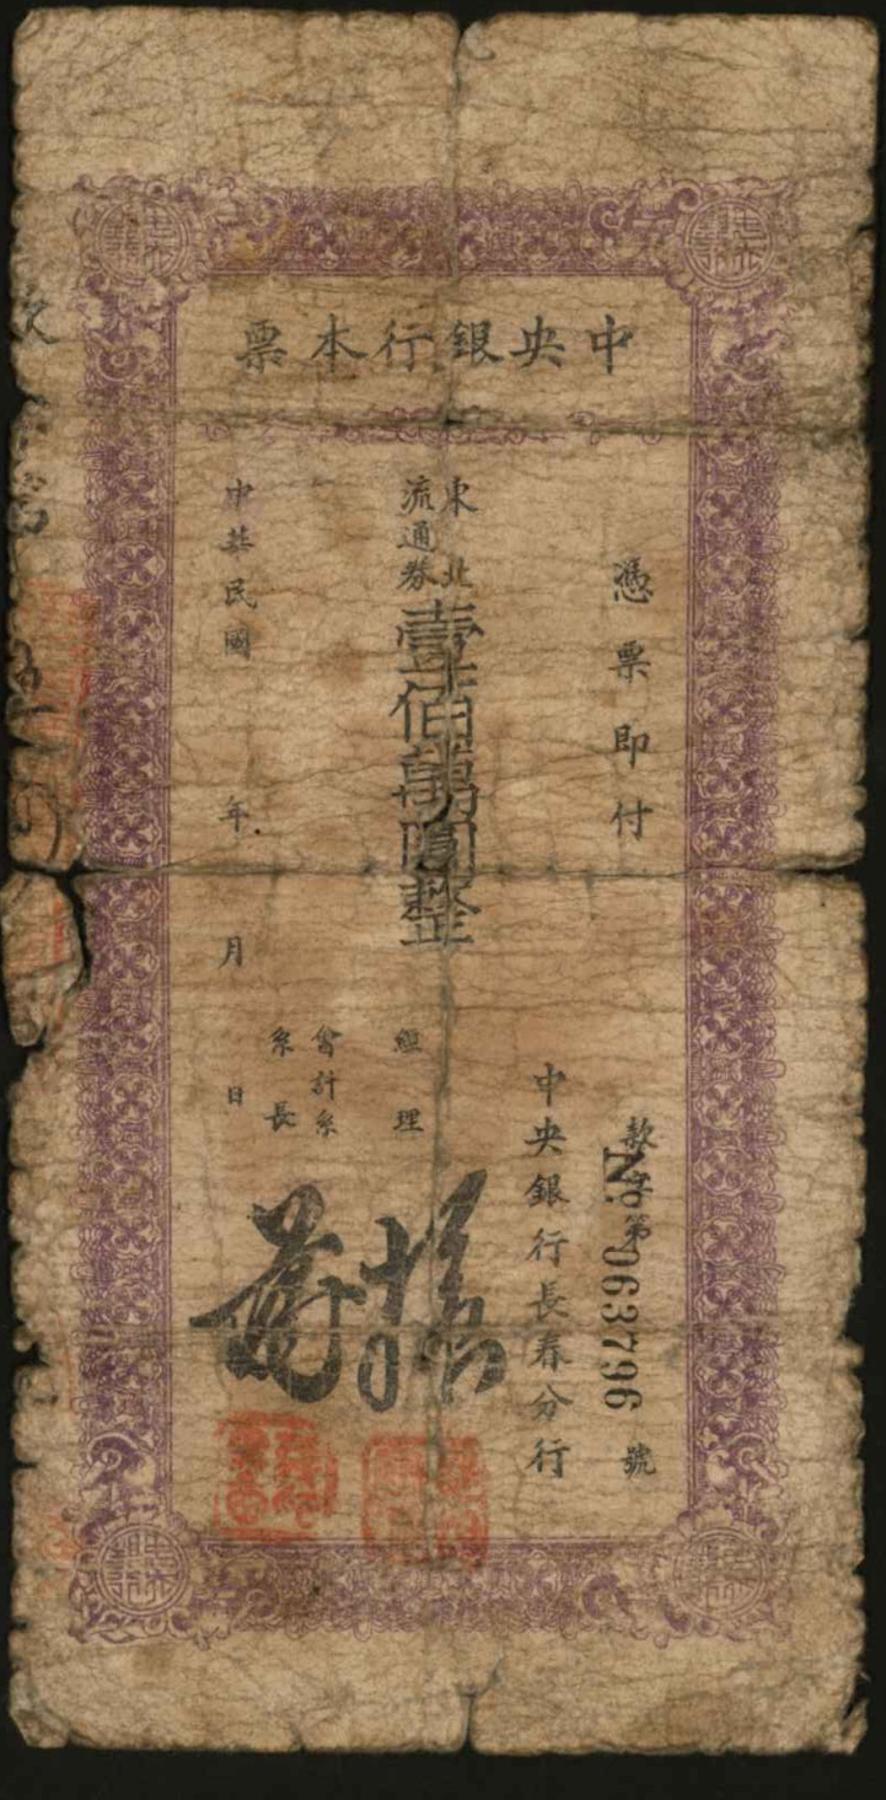 中央銀行本票
憑票即付
款字第 號
№ 063796
中央銀行長春分行
東北
流通券
壹佰萬圓整
經理
會計系
系長
中華民國 年 月 日